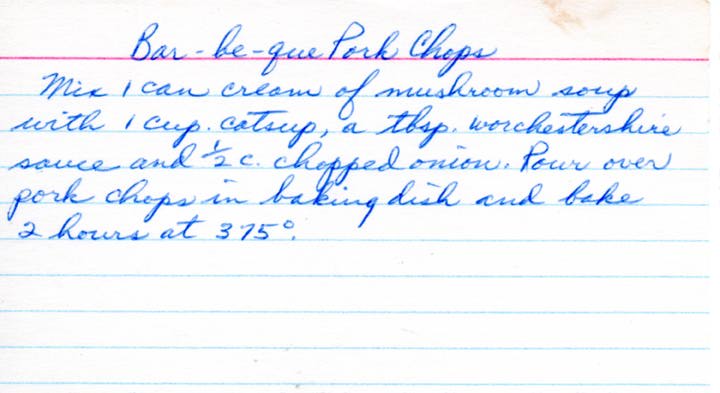 Bar-be-que Pork Chops
Mix 1 can cream of mushroom soup
with 1 cup. catsup, a tbsp. worchestershire
sauce and ½ c. chopped onion. Pour over
pork chops in baking dish and bake
2 hours at 375°.